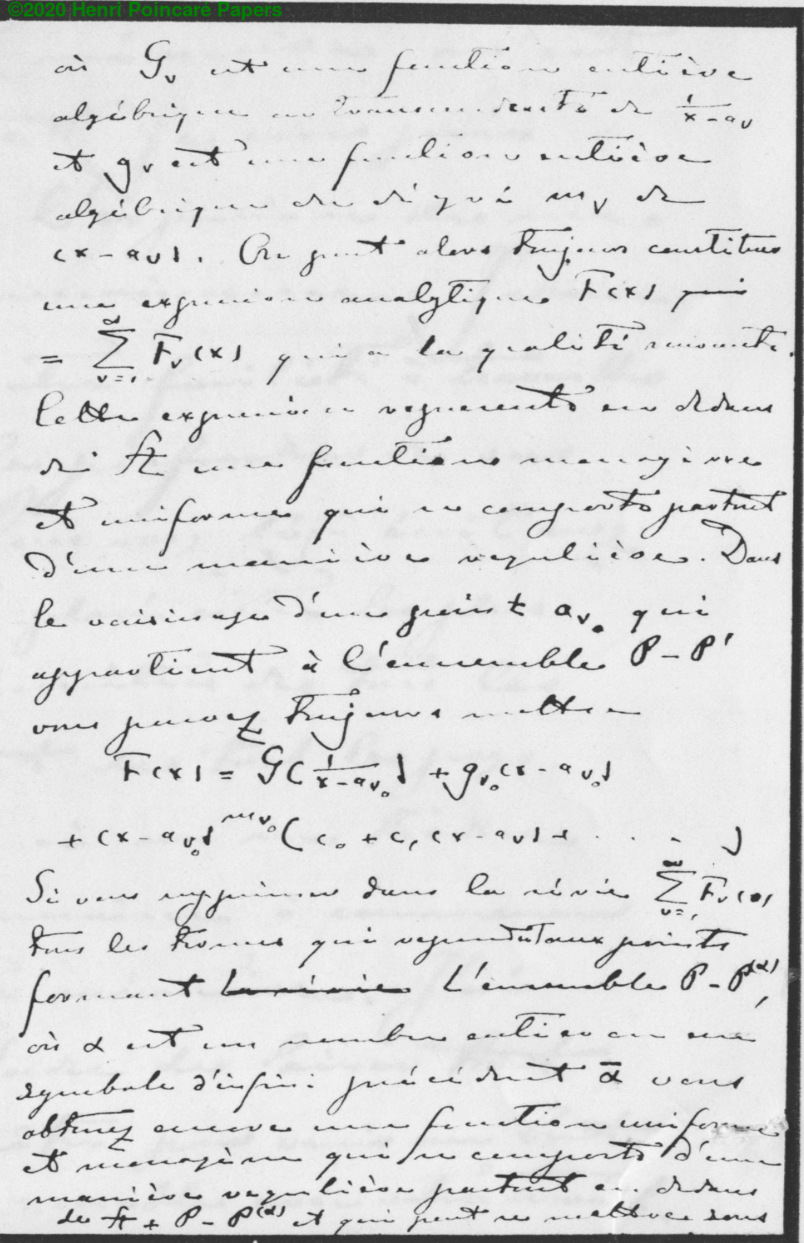 ©2020 Henri Poincaré Papers
où G_ν est une fonction entière
algébrique ou transcendente de 1/(x-a_ν)
et g_ν est une fonction entière
algébrique du dégré m_ν de
(x-a_ν). On peut alors toujours constituer
une expression analytique F(x) ~~qui~~
= ∑_{ν=1}^{∞} F_ν(x) qui a la qualité suivante.
Cette expression represente en dedans
de A une fonction monogène
et uniforme qui se comporte partout
d'une manière regulière. Dans
le voisinage d'une point a_{ν_0} qui
appartient à l'ensemble P-P'
vous pouvez toujours mettre
F(x) = G(1/(x-a_{ν_0})) + g_{ν_0}(x-a_{ν_0})
+ (x-a_{ν_0})^{m_{ν_0}} (c_0 + c_1(x-a_ν)+ . . . . )
Si vous supprimer dans la série ∑_{ν=1}^{∞} F_ν(x)
tous les termes qui repondent aux points
formant ~~la série~~ l'ensemble P-P^{(α)},
où α est un nombre entier ou un
symbole d'infini précédent ᾱ vous
obtenez encore une fonction uniforme
et monogène qui se comporte d'une
manière regulière partout en dedans
de A + P-P^{(α)} et qui peut se mettre sous